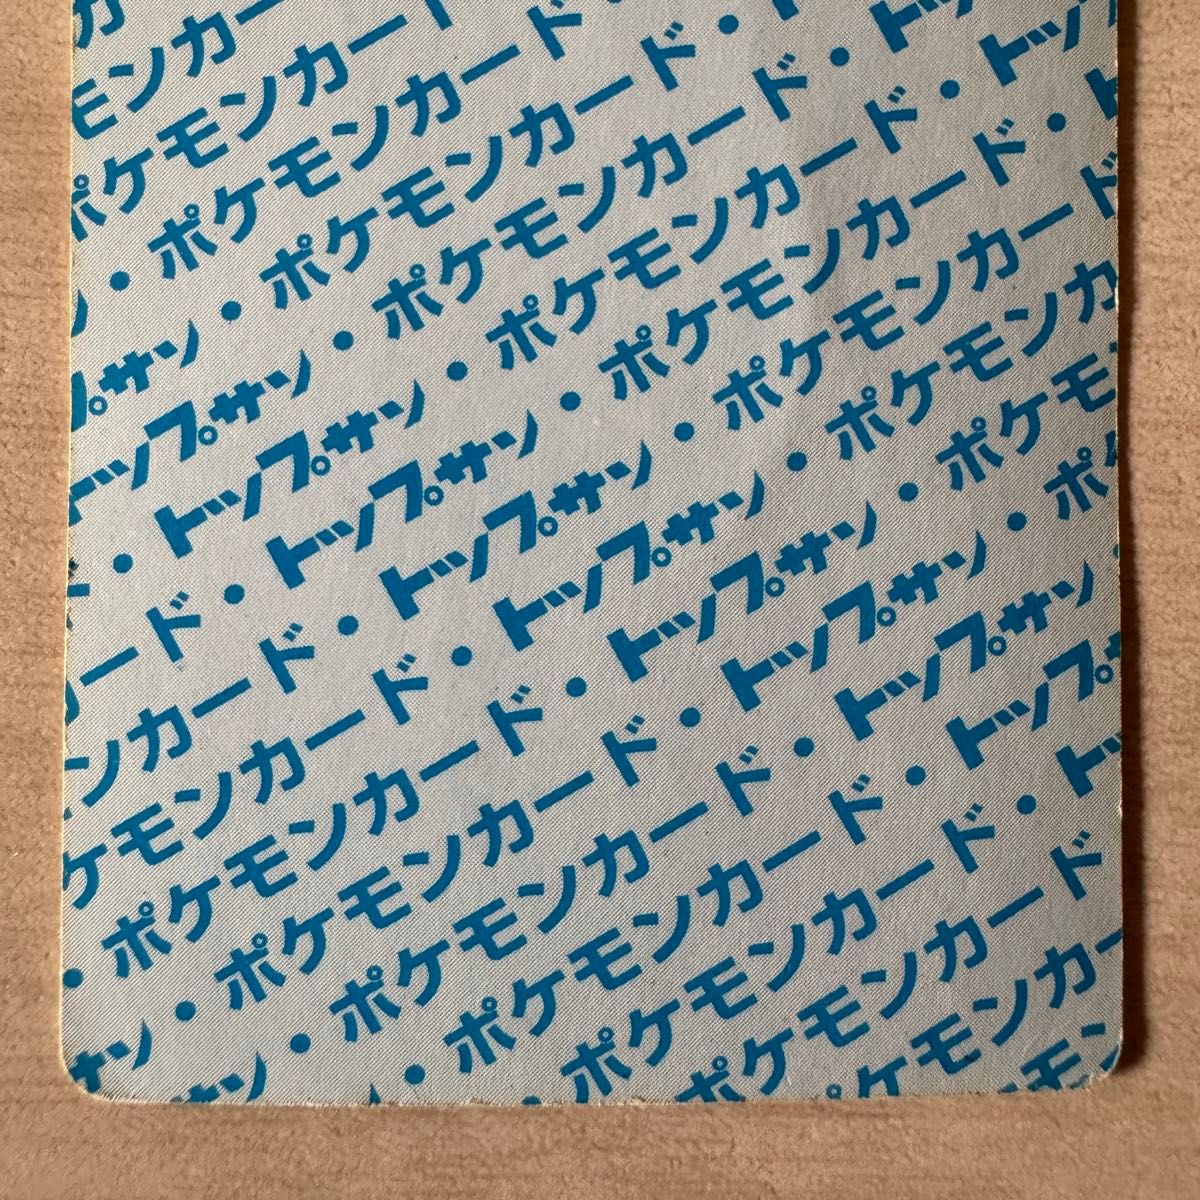 モンカー
ポケモンカード
ン・ポケモンカード・
プサン・ポケモンカード・ト
トップサン・ポケモンカード・ト
・トップサン・ポケモンカード・トップ
カード・トップサン・ポケモンカード・ト
ンカード・トップサン・ポケモンカード
ケモンカード・トップサン・ポケモンカ
・ポケモンカード・トップサン・ポケモ
サン・ポケモンカード・トップサン・ポ
サン・ポケモンカード・トップサン
・ポケモンカード・トップサ
ポケモンカード・トッ
ポケモンカード
ケモンカー
モン